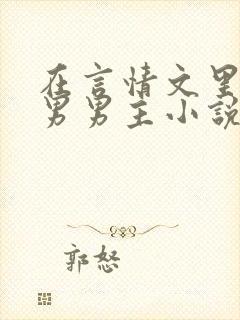 在言情文里
男男主小説
郭怒